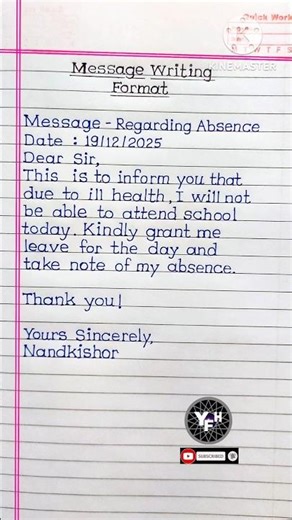 Quick Work
D T W T F S
KINEMASTER
Message Writing
Format
Message - Regarding Absence
Date : 19/12/2025
Dear Sir,
This is to inform you that
due to ill health, I will not
be able to attend school
today. Kindly grant me
leave for the day and
take note of my absence.
Thank you!
Yours Sincerely,
Nandkishor
YFH
SUBSCRIBED